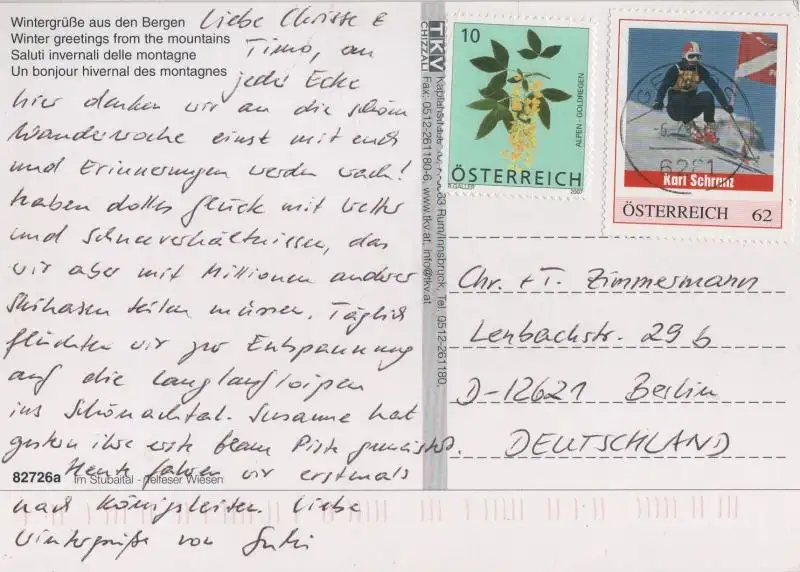 Wintergrüße aus den Bergen
Winter greetings from the mountains
Saluti invernali delle montagne
Un bonjour hivernal des montagnes
Liebe Chrisse &
Timo, an
jeder Ecke
hier denken wir an die schöne
Wanderwoche einst mit euch
und Erinnerungen werden wach!
Haben dolles Glück mit Wetter
und Schneeverhältnissen, das
wir aber mit Millionen anderer
Skihasen teilen müssen. Täglich
flüchten wir zur Entspannung
auf die Langlaufloipen
ins Schönachtal. Susanne hat
gestern ihre erste blaue Piste gemeistert.
Heute fahren wir erstmals
nach Königsleiten. Liebe
Wintergrüße von
82726a Im Stubaital - Telfeser Wiesen
TKV
CHIZZALI
Rum/Innsbruck, Tel. 0512-261180,
Fax: 0512-261180-6, www.tkv.at, info@tkv.at
10
ALPEN-GOLDREGEN
ÖSTERREICH
B.GALLER 2007
6281
Karl Schranz
ÖSTERREICH 62
Chr. + T. Zimmermann
Lenbachstr. 29 b
D-12621 Berlin
DEUTSCHLAND